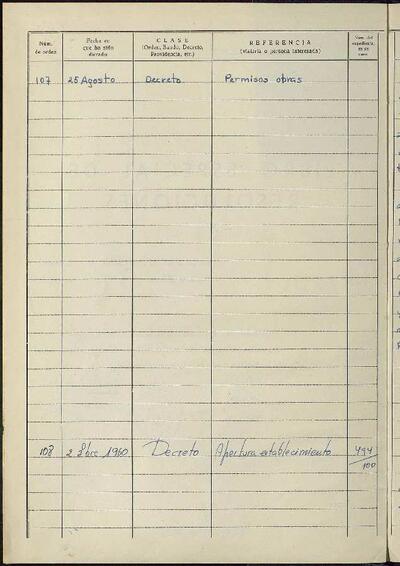 Núm. de orden
Fecha en que ha sido dictado
CLASE
(Orden, Bando, Decreto, Providencia, etc.)
REFERENCIA
(Materia o persona interesada)
Núm. del expediente, en su caso
107 25 Agosto Decreto Permisos obras
108 2 1960 Decreto Apertura establecimiento
100